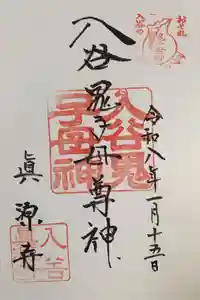 おそれ
入谷の
入谷鬼子母尊神
入谷鬼
子母神
令和八年一月十五日
眞源寺